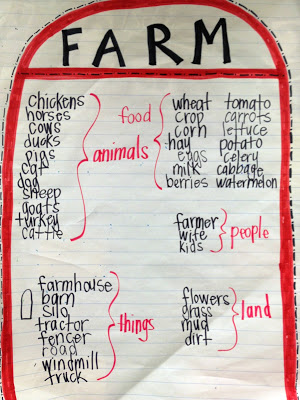 FARM
chickens
horses
cows
ducks
pigs
cat
dog
sheep
goats
turkey
cattle
animals
food
wheat tomato
crop carrots
corn lettuce
hay potato
eggs celery
milk cabbage
berries watermelon
farmer
wife
kids
people
farmhouse
barn
silo
tractor
fences
road
windmill
truck
things
flowers
grass
mud
dirt
land